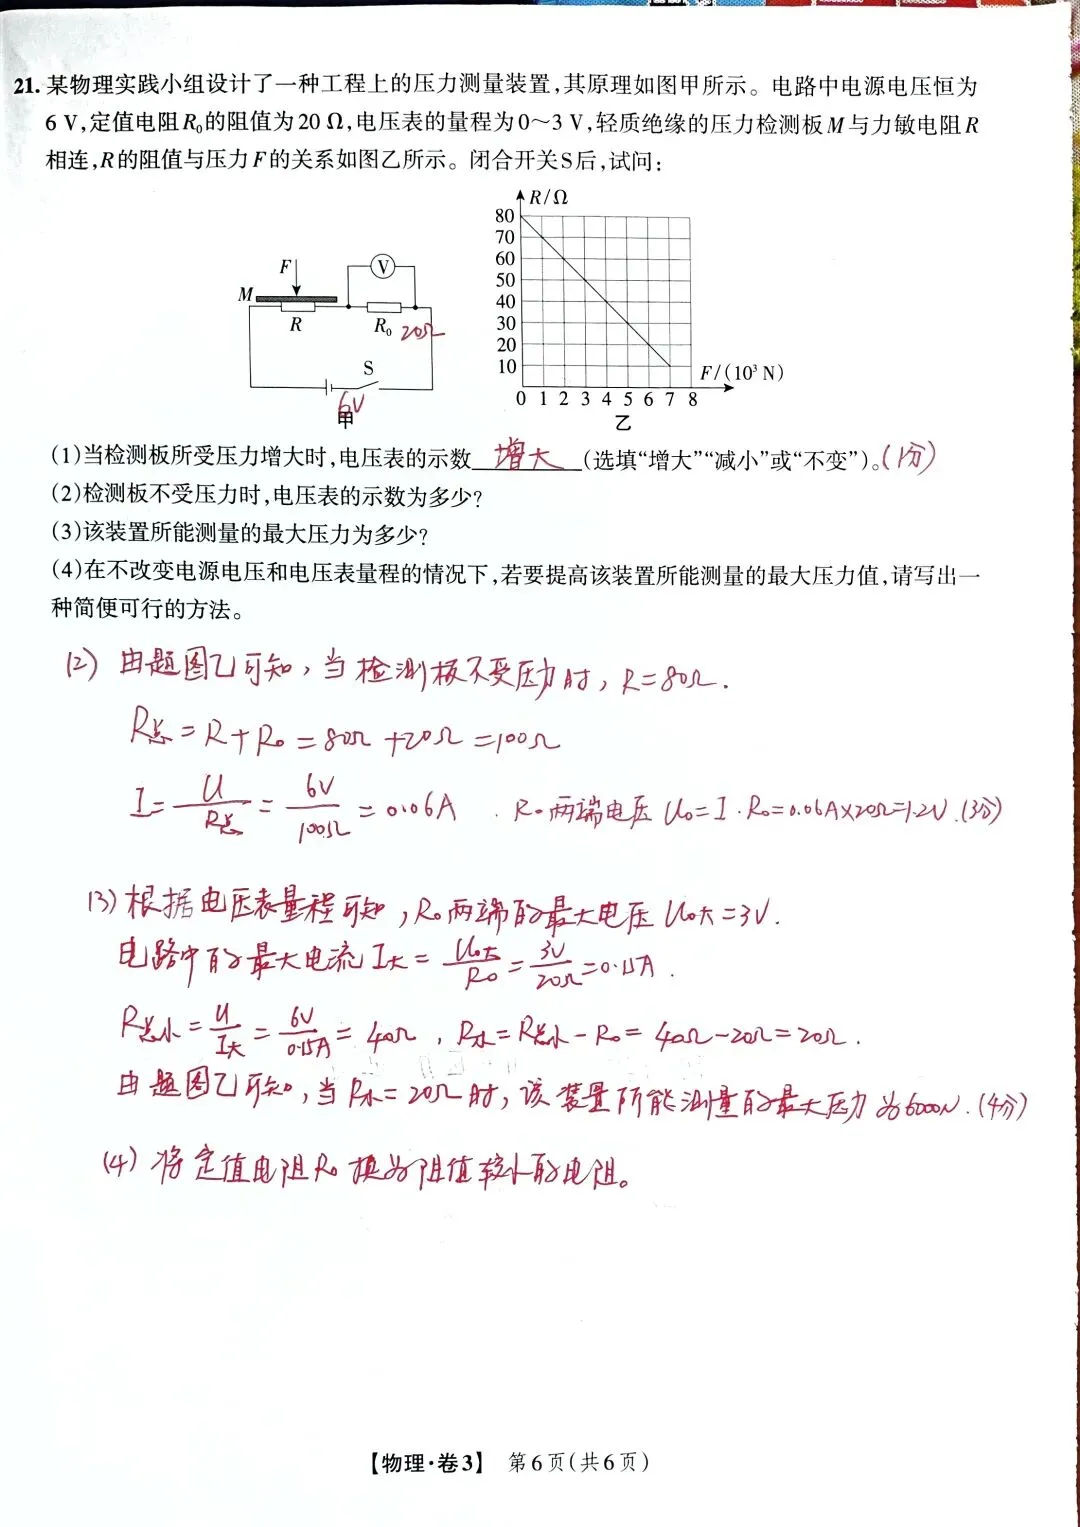 21.某物理实践小组设计了一种工程上的压力测量装置,其原理如图甲所示。电路中电源电压恒为
6 V,定值电阻R₀的阻值为20 Ω,电压表的量程为0~3 V,轻质绝缘的压力检测板M与力敏电阻R
相连,R的阻值与压力F的关系如图乙所示。闭合开关S后,试问:
F
V
M
R
R₀ 20Ω
S
6V
甲
R/Ω
80
70
60
50
40
30
20
10
F/(10³ N)
0 1 2 3 4 5 6 7 8
乙
(1)当检测板所受压力增大时,电压表的示数 增大 (选填“增大”“减小”或“不变”)。(1分)
(2)检测板不受压力时,电压表的示数为多少?
(3)该装置所能测量的最大压力为多少?
(4)在不改变电源电压和电压表量程的情况下,若要提高该装置所能测量的最大压力值,请写出一
种简便可行的方法。
(2) 由题图乙可知,当检测板不受压力时,R=80Ω.
R总=R+R₀=80Ω+20Ω=100Ω
I=U/R总=6V/100Ω=0.06A . R₀两端电压U₀=I·R₀=0.06A×20Ω=1.2V.(3分)
(3)根据电压表量程可知,R₀两端的最大电压U₀大=3V.
电路中的最大电流I大=U₀大/R₀=3V/20Ω=0.15A.
R总小=U/I大=6V/0.15A=40Ω,R小=R总小-R₀=40Ω-20Ω=20Ω.
由题图乙可知,当R小=20Ω时,该装置所能测量的最大压力为6000N.(4分)
(4) 将定值电阻R₀换为阻值较小的电阻。
【物理·卷3】 第6页(共6页)